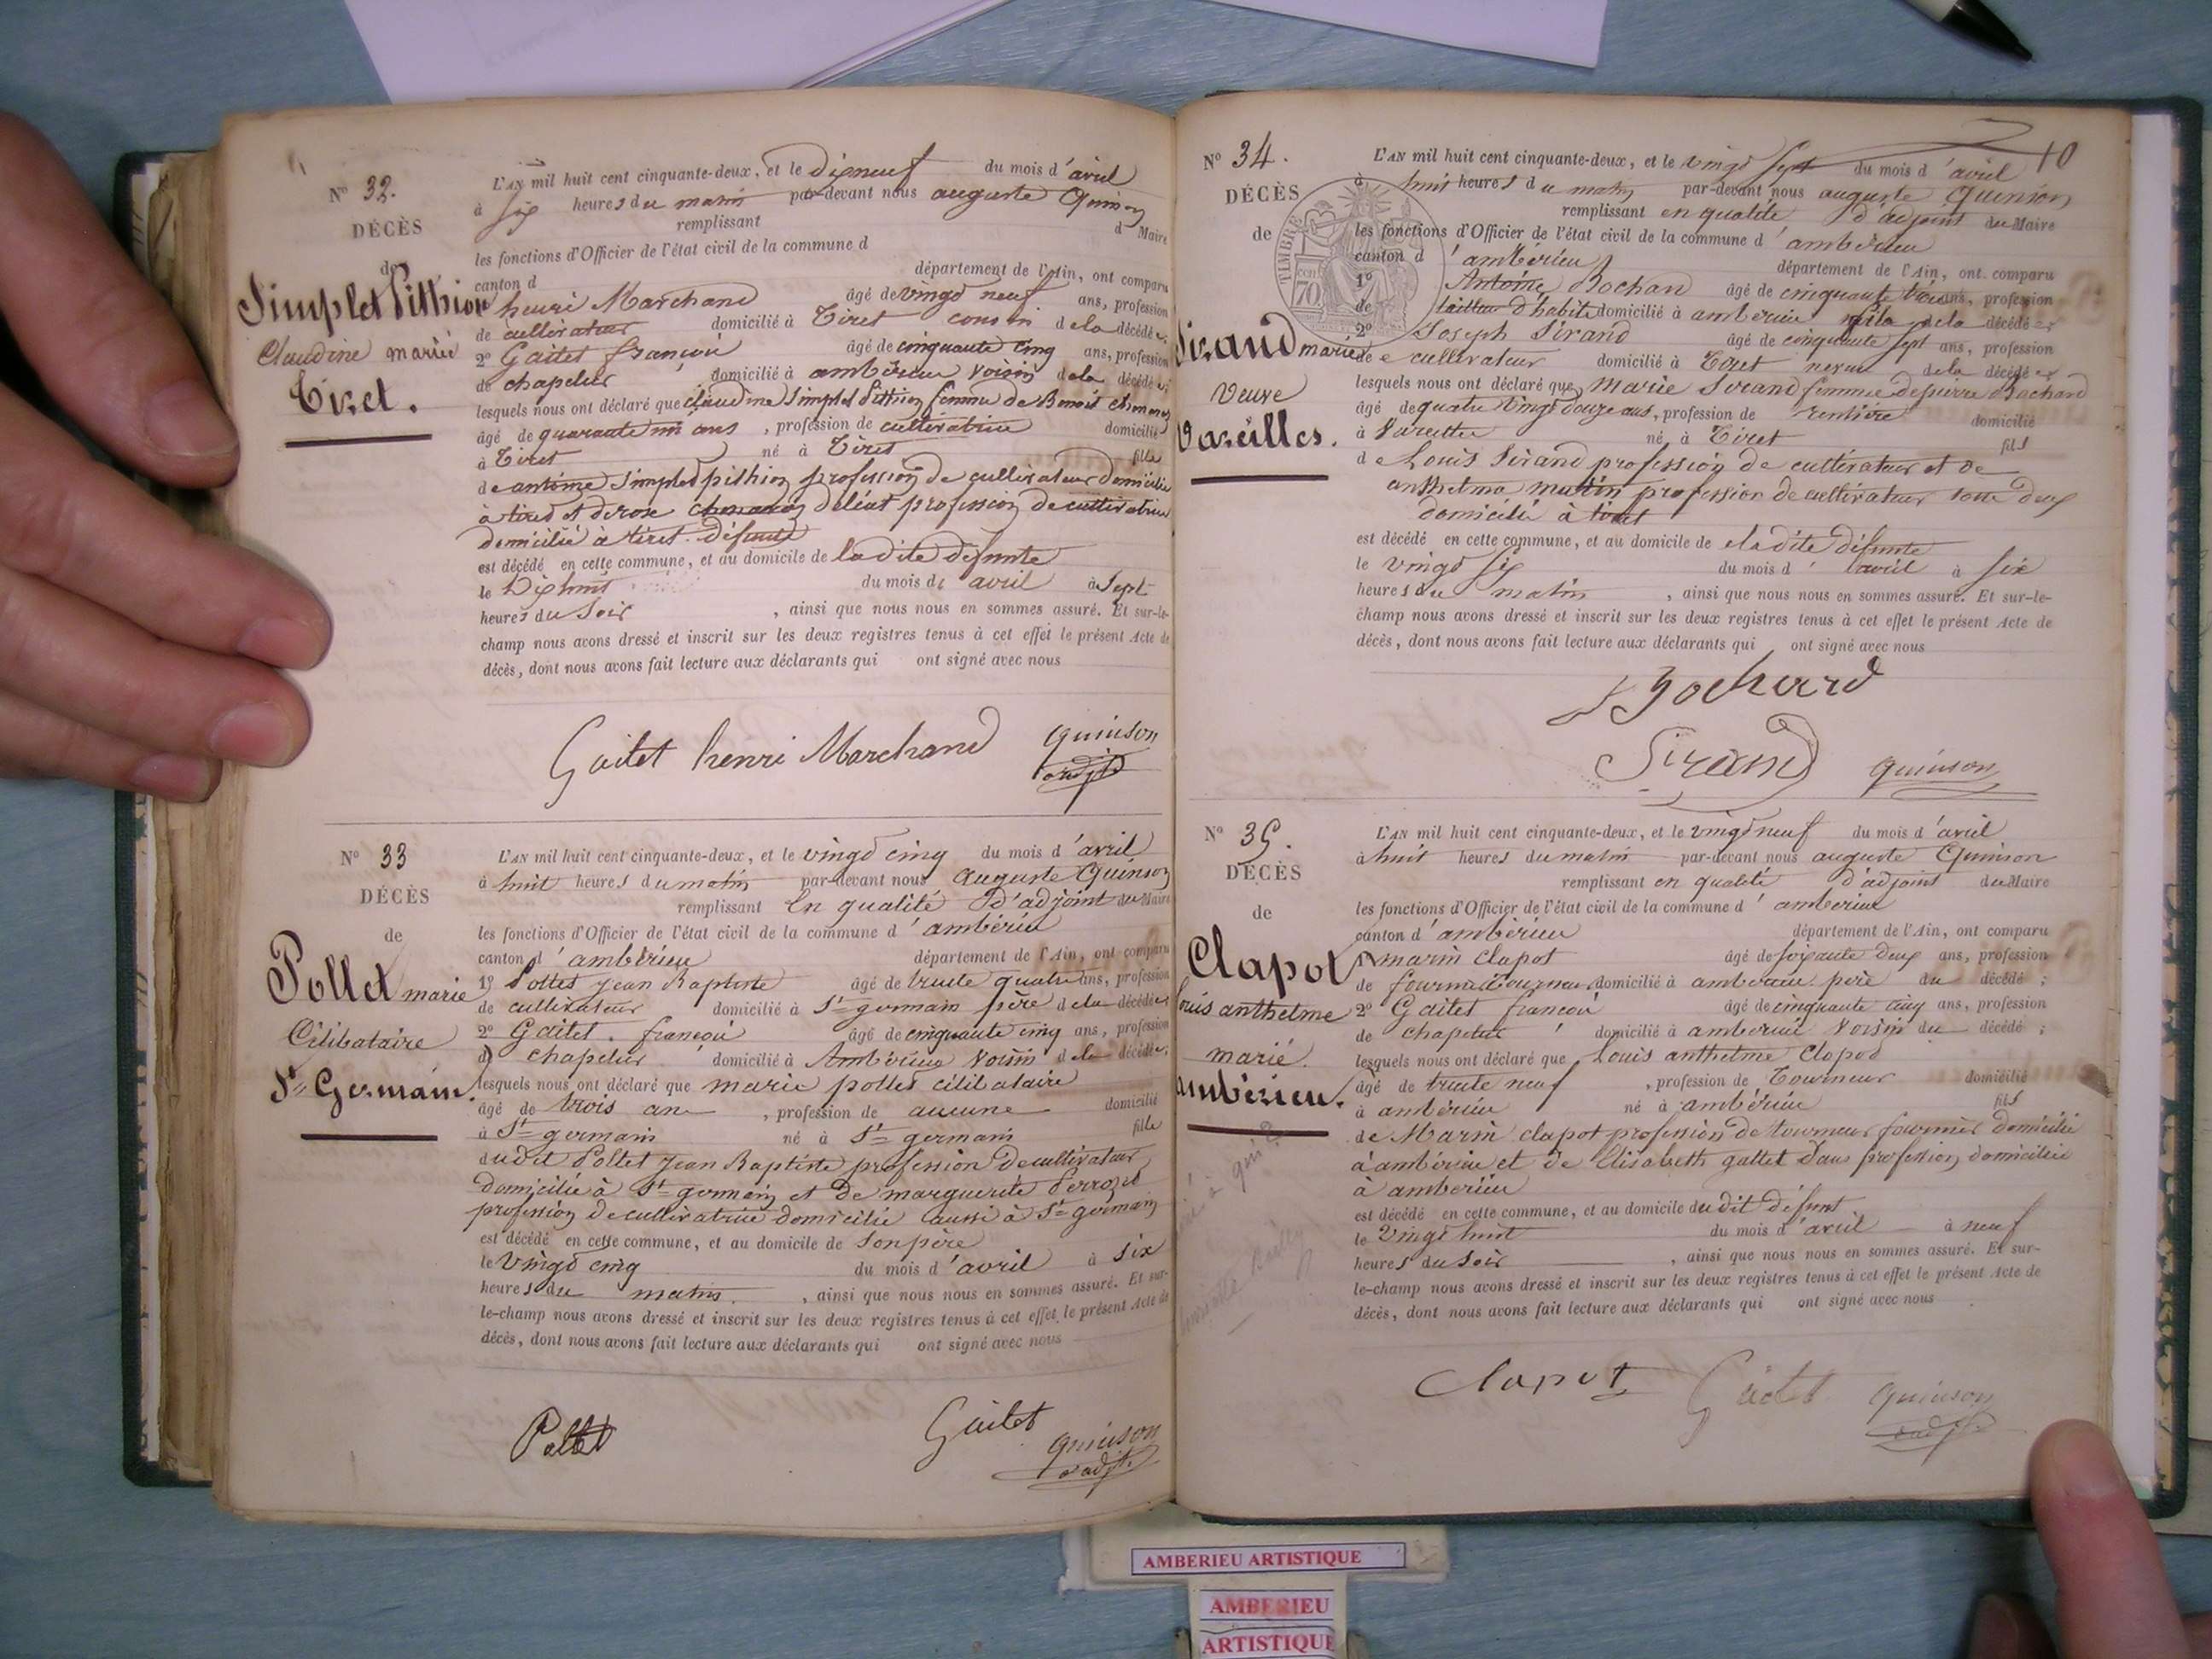 N° 32.
DÉCÈS
de
Simplet Pithion
Claudine mariée
Tiret.
L'AN mil huit cent cinquante-deux, et le dixneuf du mois d'avril
à six heures du matin par-devant nous auguste Quinson
remplissant d Maire
les fonctions d'Officier de l'état civil de la commune d
canton d département de l'Ain, ont comparu
henri Marchand âgé de vingt neuf ans, profession
de cultivateur domicilié à Tiret cousin de la décédée;
2° Gaitet françois âgé de cinquante cinq ans, profession
de chapelier domicilié à ambérieu voisin de la décédée;
lesquels nous ont déclaré que claudine Simplet Pithion femme de Benoit
âgé de quarante un ans, profession de cultivatrice domicilié
à Tiret né à Tiret fille
de antoine Simplet pithion profession de cultivateur domicilié
à tiret et de rose profession de cultivatrice
domicilié à tiret. défunte
est décédé en cette commune, et au domicile de la dite défunte
le Dixhuit du mois de avril à Sept
heures du Soir, ainsi que nous nous en sommes assuré. Et sur-le-
champ nous avons dressé et inscrit sur les deux registres tenus à cet effet le présent Acte de
décès, dont nous avons fait lecture aux déclarants qui ont signé avec nous
Gaitet henri Marchand Quinson
adjt
N° 33
DÉCÈS
de
Pollet marie
Célibataire
St Germain.
L'AN mil huit cent cinquante-deux, et le vingt cinq du mois d'avril
à huit heures du matin par-devant nous auguste Quinson
remplissant en qualité d'adjoint du Maire
les fonctions d'Officier de l'état civil de la commune d'ambérieu
canton d'ambérieu département de l'Ain, ont comparu
1° Pollet jean Baptiste âgé de trente quatre ans, profession
de cultivateur domicilié à St germain père de la décédée
2° Gaitet françois âgé de cinquante cinq ans, profession
de chapelier domicilié à Ambérieu voisin de la décédée;
lesquels nous ont déclaré que marie pollet célibataire
âgé de trois an, profession de aucune domicilié
à St germain né à St germain fille
dudit Pollet jean Baptiste profession de cultivateur
domicilié à St germain et de marguerite
profession de cultivatrice domicilié aussi à St germain
est décédé en cette commune, et au domicile de Son père
le Vingt cinq du mois d'avril à six
heures du matin, ainsi que nous nous en sommes assuré. Et sur-
le-champ nous avons dressé et inscrit sur les deux registres tenus à cet effet le présent Acte de
décès, dont nous avons fait lecture aux déclarants qui ont signé avec nous
Pollet Gaitet Quinson
adjt
10
N° 34.
DÉCÈS
de
TIMBRE
70
Sirand marie
Veuve
Vareilles.
L'AN mil huit cent cinquante-deux, et le vingt Sept du mois d'avril
à huit heures du matin par-devant nous auguste Quinson
remplissant en qualité d'adjoint du Maire
les fonctions d'Officier de l'état civil de la commune d'ambérieu
canton d'ambérieu département de l'Ain, ont comparu
1° Antoine Bochard âgé de cinquante trois ans, profession
de tailleur d'habits domicilié à ambérieu fils de la décédée
2° Joseph Sirand âgé de cinquante sept ans, profession
de cultivateur domicilié à Tiret neveu de la décédée
lesquels nous ont déclaré que marie Sirand femme de pierre Bochard
âgé de quatre vingt douze ans, profession de rentière domicilié
à Vareilles né à Tiret fils
de Louis Sirand profession de cultivateur et de
anthelma profession de cultivateur tous deux
domicilié à tiret
est décédé en cette commune, et au domicile de la dite défunte
le vingt six du mois d'avril à six
heures du matin, ainsi que nous nous en sommes assuré. Et sur-le-
champ nous avons dressé et inscrit sur les deux registres tenus à cet effet le présent Acte de
décès, dont nous avons fait lecture aux déclarants qui ont signé avec nous
Bochard
Sirand Quinson
N° 35.
DÉCÈS
de
Clapot
Louis anthelme
marié.
ambérieu.
L'AN mil huit cent cinquante-deux, et le vingt neuf du mois d'avril
à huit heures du matin par-devant nous auguste Quinson
remplissant en qualité d'adjoint du Maire
les fonctions d'Officier de l'état civil de la commune d'ambérieu
canton d'ambérieu département de l'Ain, ont comparu
1° marin clapot âgé de soixante deux ans, profession
de fournier tourneur domicilié à ambérieu père du décédé;
2° Gaitet françois âgé de cinquante cinq ans, profession
de chapelier domicilié à ambérieu voisin du décédé;
lesquels nous ont déclaré que Louis anthelme Clapot
âgé de trente neuf, profession de Tourneur domicilié
à ambérieu né à ambérieu fils
de Marin clapot profession de tourneur fournier domicilié
à ambérieu et de Elisabeth gallet sans profession domiciliée
à ambérieu
est décédé en cette commune, et au domicile du dit défunt
le Vingt huit du mois d'avril à neuf
heures du Soir, ainsi que nous nous en sommes assuré. Et sur-
le-champ nous avons dressé et inscrit sur les deux registres tenus à cet effet le présent Acte de
décès, dont nous avons fait lecture aux déclarants qui ont signé avec nous
Clapot Gaitet Quinson
adjt
AMBERIEU ARTISTIQUE
AMBERIEU
ARTISTIQUE